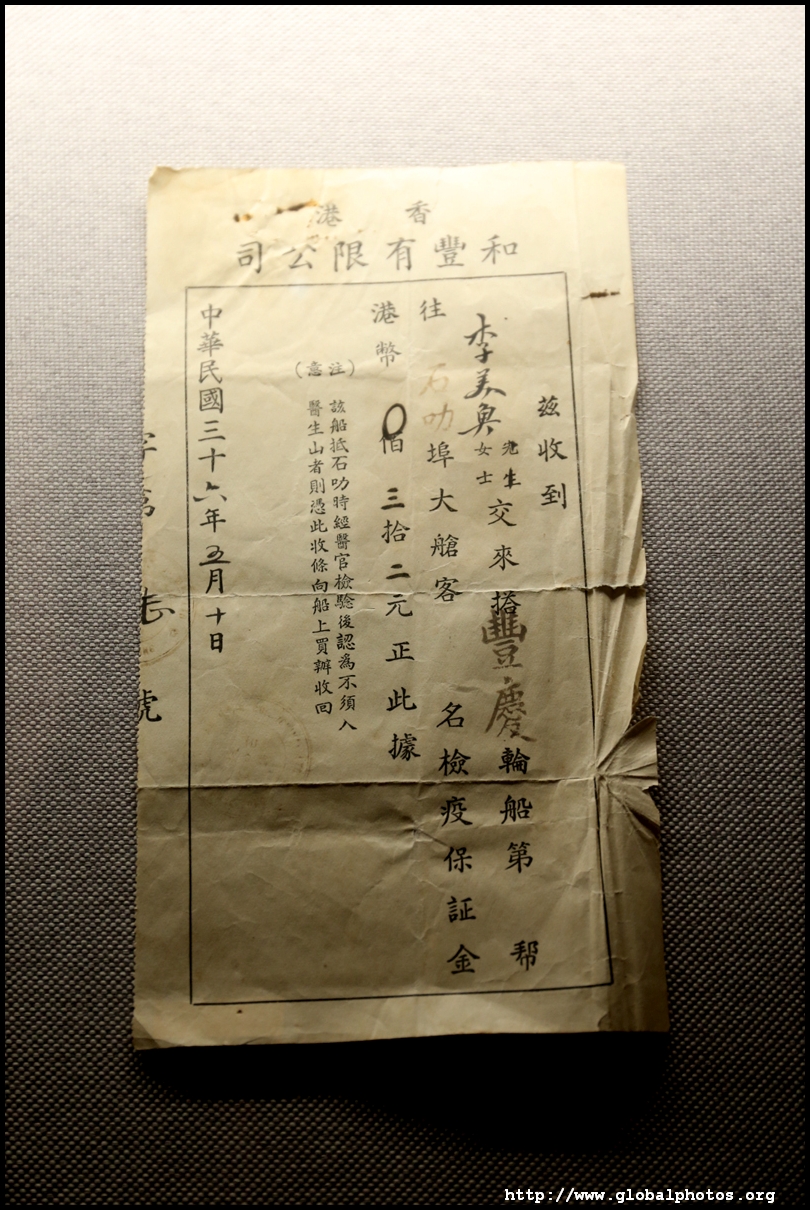 香港
和豐有限公司
茲收到
李美興先生女士交來搭豐慶輪船第 帮
往石叻埠大艙客 名檢疫保証金
港幣0佰三拾二元正此據
(注意)
該船抵石叻時經醫官檢驗後認為不須入
醫生山者則憑此收條向船上買辦收回
中華民國三十六年五月十日
號
http://www.globalphotos.org